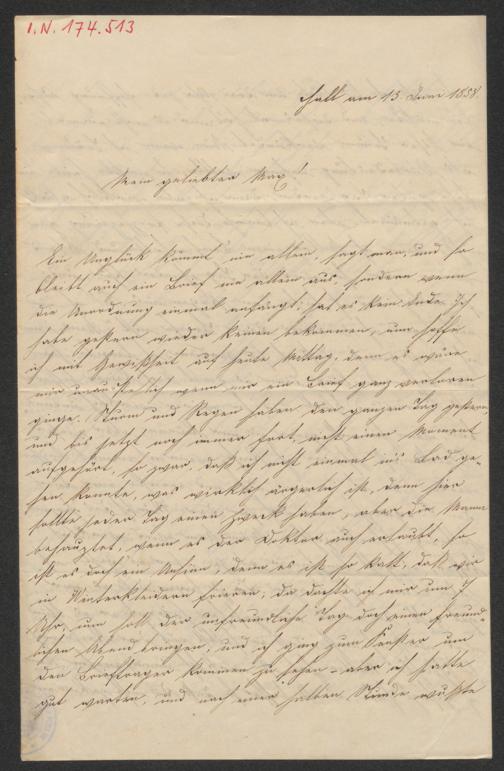 I.N. 174.513
Hall am 13. Juni 1858.
Mein geliebter Max!
Ein Unglück kömmt nie allein, sagt man, und so
bleibt auch ein Brief nie allein aus, sondern wenn
die Unordnung einmal anfängt, hat es kein Ende. Ich
habe gestern wieder keinen bekommen, nun hoffe
ich mit Gewißheit auf heute Mittag, denn es wäre
mir unausstehlich wenn mir ein Brief ganz verloren
ginge. Sturm und Regen haben den ganzen Tag gestern,
und bis jetzt noch immer fort, nicht einen Moment
aufgehört, so zwar, daß ich nicht einmal ins Bad ge-
hen konnte, was wirklich ärgerlich ist, denn hier
sollte jeder Tag einen Zweck haben, aber die Mama
behauptet, wenn es der Doktor auch erlaubt, so
ist es doch ein Unsinn, denn es ist so kalt, daß wir
in Winterkleidern frieren; da dachte ich mir um 7
Uhr, nun soll der unfreundliche Tag doch einen freund-
lichen Abend bringen, und ich ging zum Fenster um
den Briefträger kommen zu sehen – aber ich hatte
gut warten, und nach einer halben Stunde wußte